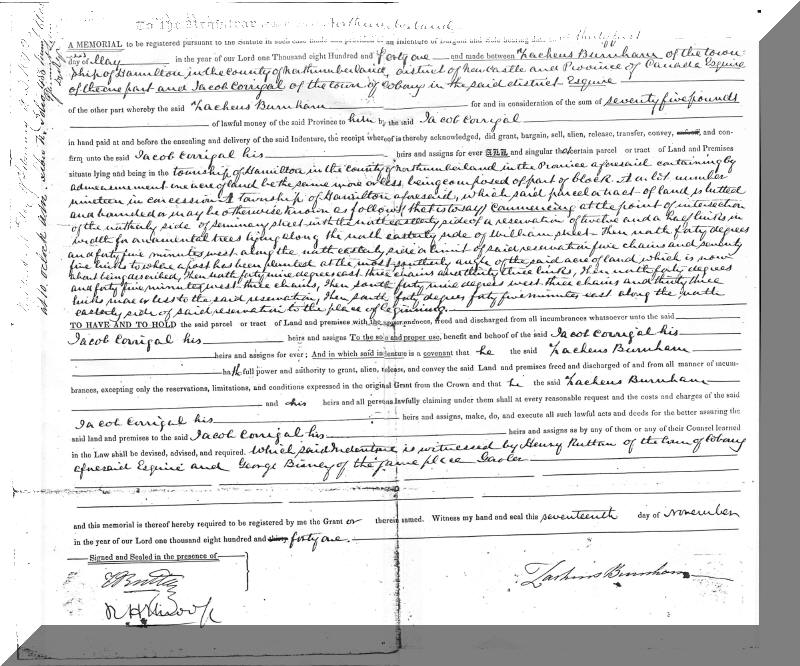 To the Registrar Northumberland
A MEMORIAL to be registered pursuant to the Statute in such case made and provided of an Indenture of Bargain and Sale bearing date
day of May in the year of our Lord One Thousand eight Hundred and Forty one and made between Zacheus Burnham of the town-
ship of Hamilton in the county of Northumberland, district of Newcastle and Province of Canada Esquire
of the one part and Jacob Corrigal of the town of Cobourg in the said district Esquire
of the other part whereby the said Zacheus Burnham for and in consideration of the sum of seventy five pounds
of lawful money of said Province to him by the said Jacob Corrigal
in hand paid at and before the ensealing and delivery of the said Indenture, the receipt whereof is thereby acknowledged, did grant, bargain, sell, alien, release, transfer, convey, and con-
firm unto the said Jacob Corrigal his heirs and assigns for ever ALL and singular the certain parcel or tract of Land and Premises
situate lying and being in the township of Hamilton in the county of Northumberland in the Province aforesaid containing by
admeasurement one acre of land be the same more or less, being composed of part of block A in lot number
nineteen in concession A township of Hamilton aforesaid, which said parcel or tract of land is butted
and bounded or may be otherwise known as follows (that is to say) commencing at the point of intersection
of the northerly side of seminary street with the north easterly side of a reservation of twelve and a half links in
width for ornamental trees lying along the north easterly side of William street. Then north forty degrees
and forty five minutes west along the north easterly side or limit of said reservation five chains and seventy
five links to where a post has been planted at the most southerly angle of the said acre of land which is now
about being described, then north forty nine degrees east three chains and thirty three links, then north forty degrees
and forty five minutes west three chains, then south forty nine degrees west three chains and thirty three
links more or less to the said reservation, then south forty degrees forty five minutes east along the north
easterly side of said reservation to the place of beginning.
TO HAVE AND TO HOLD the said parcel or tract of Land and premises with the freed and discharged from all incumbrances whatsoever unto the said
Jacob Corrigal his heirs and assigns To the sole and proper use, benefit and behoof of the said Jacob Corrigal his
heirs and assigns for ever; And in which said indenture is a covenant that he the said Zacheus Burnham
hath full power and authority to grant, alien, release, and convey the said Land and premises freed and discharged of and from all manner of incum-
brances, excepting only the reservations, limitations, and conditions expressed in the original Grant from the Crown and that he the said Zacheus Burnham
and his heirs and all persons lawfully claiming under them shall at every reasonable request and the costs and charges of the said
Jacob Corrigal his heirs and assigns, make, do, and execute all such lawful acts and deeds for the better assuring the
said land and premises to the said Jacob Corrigal his heirs and assigns as by any of them or any of their Counsel learned
in the Law shall be devised, advised, and required. Which said Indenture is witnessed by Henry Ruttan of the town of Cobourg
aforesaid Esquire and George of the same place Gaoler
and this memorial is thereof hereby required to be registered by me the Grant or therein named. Witness my hand and seal this seventeenth day of November
in the year of our Lord one thousand eight hundred and thirty forty one.
Signed and Sealed in the presence of
Zacheus Burnham